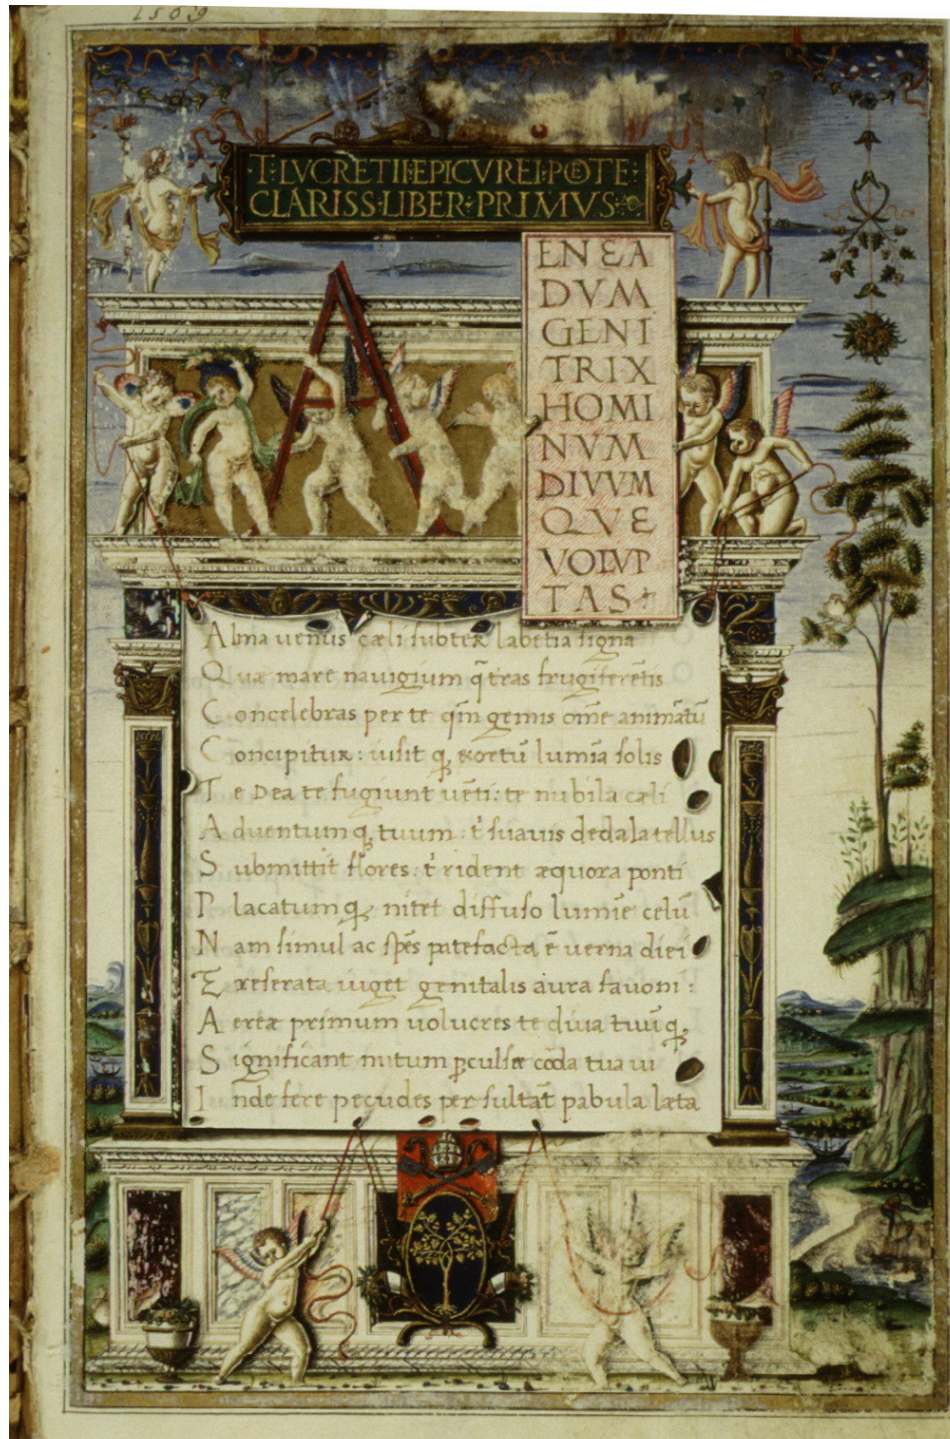 1509
·T·LVCRETII·EPICVREI·POETE·
CLARISS·LIBER·PRIMVS·
A
ENEA
DVM
GENI
TRIX
HOMI
NVM
DIVVM
QVE
VOLVP
TAS
Alma uenus cæli subter labētia signa
Quæ mare nauigium q̄ tras frugiferētis
Concelebras per te qm̄ genus om̄e animātū
Concipitur: uisit q; exortū lumīa solis
Te Dea te fugiunt uēti: te nubila cæli
Aduentum q; tuum: t' suauis dedala tellus
Submittit flores: t' rident æquora ponti
Placatum q; nitet diffuso lumīe celū
Nam simul ac spēs patefacta ē uerna diei
Exreserata uiget genitalis aura fauoni:
Aereæ primum uolucres te diua tuū q;
Significant initum ꝑculsæ coda tua ui
Inde fere pecudes per sultāt pabula læta